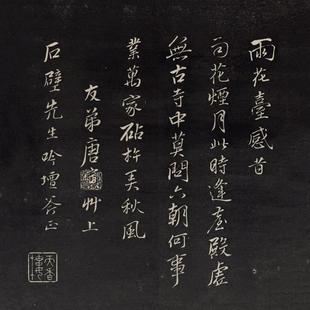 雨花臺感昔
花煙月此時逢臺殿虛
無古寺中莫問六朝何事
業萬家砧杵秋風
友弟唐寅艸上
石壁先生吟壇正